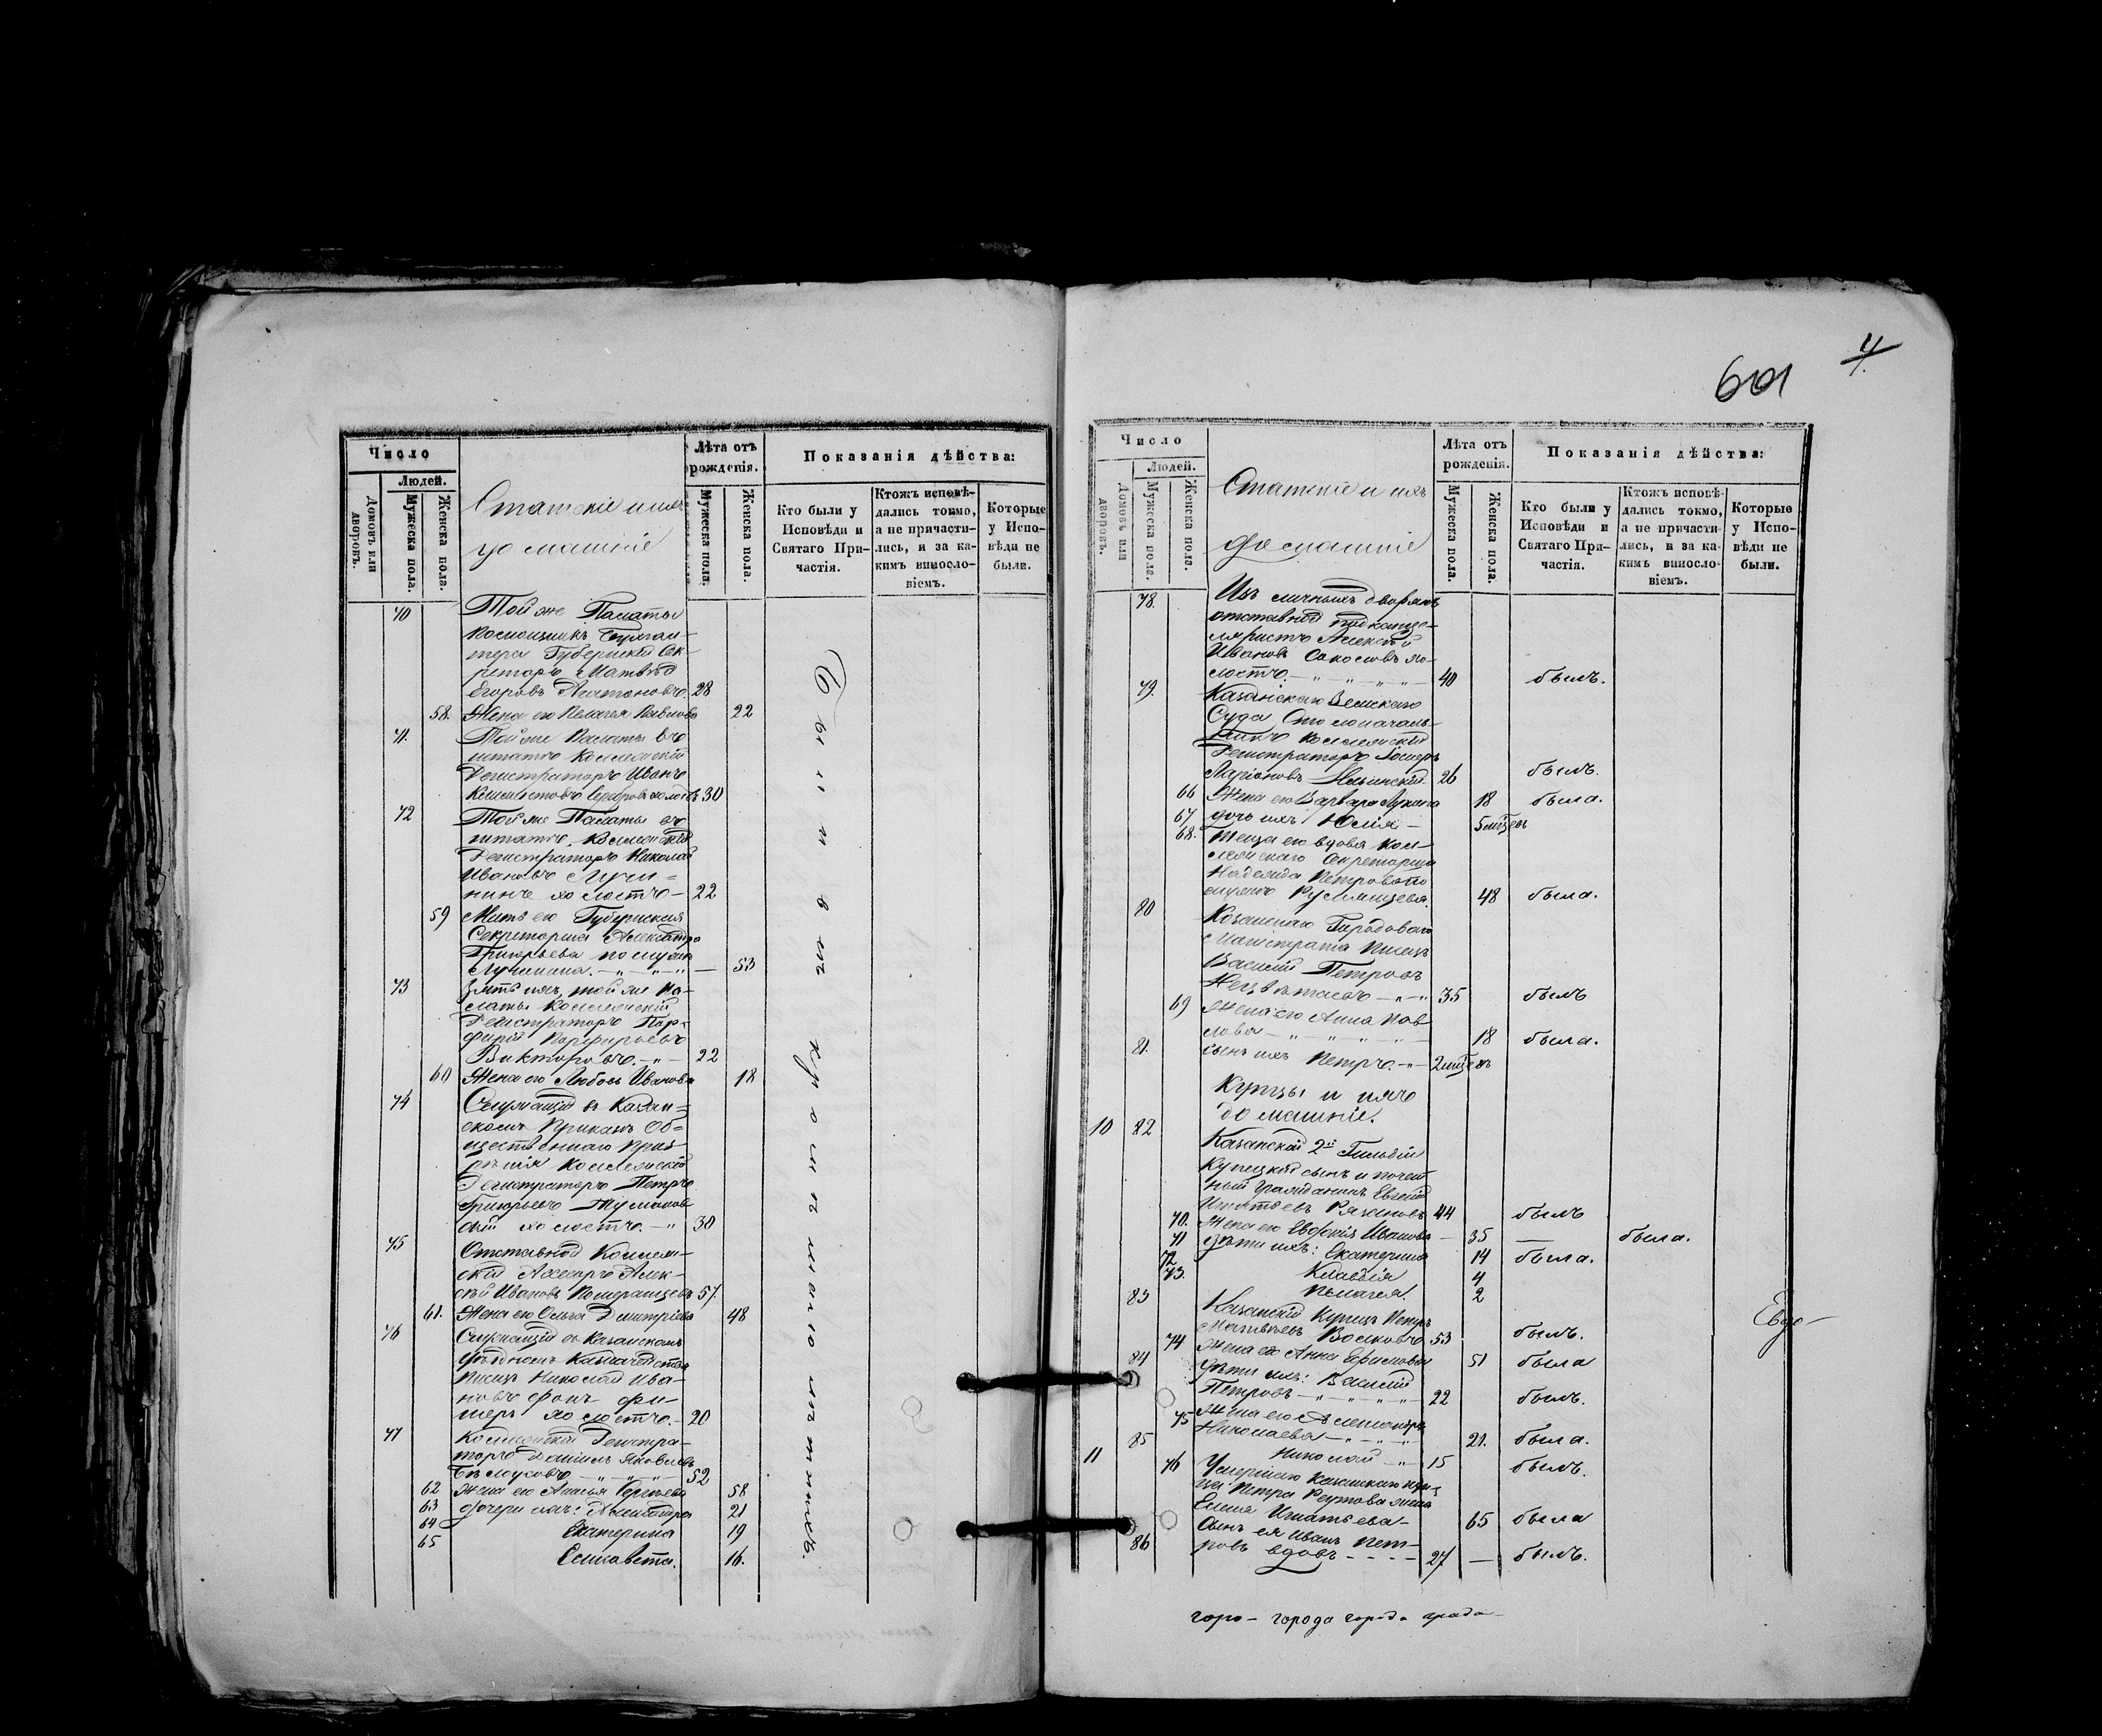 601
4
Число
Людей.
Домовъ или дворовъ.
Мужеска пола.
Женска пола.
Статскіе и ихъ
домашніе
Лѣта отъ рожденія.
Мужеска пола.
Женска пола.
Показанія дѣйства:
Кто были у Исповѣди и Святаго Причастія.
Ктожъ исповѣдались токмо, а не причастились, и за какимъ винословіемъ.
Которые у Исповѣди не были.
70 Той же Палаты
помощникъ Бухгал-
тера Губернскій Сек-
ретарь Матвѣй
Егоровъ 28
58. Жена его Пелагея Павлова 22
71. Той же Палаты въ
штатѣ Коллежскій
Регистраторъ Иванъ
30
72 Той же Палаты въ
штатѣ Коллежскій
Регистраторъ Николай
Ивановъ Лучи-
нинъ холостъ 22
59 Мать его Губернская
Секретарша Александра
Григорьева по мужѣ
Лучинина. 53
73 Зять ихъ, той же Па-
латы Коллежскій
Регистраторъ Пор-
фирій Порфирьевъ
Викторовъ. 22
60 Жена его Любовь Иванова 18
74 Служащій въ Казан-
скомъ Приказѣ Об-
щественнаго Приз-
рѣнія Коллежскій
Регистраторъ Петръ
Григорьевъ
холостъ. 30
75 Отставной Коллеж-
скій Ассесоръ Алек-
сѣй Ивановъ Померанцевъ 57.
61. Жена его Ольга Димитріева 48
76 Служащій въ Казанскомъ
Уѣздномъ Казначействѣ
Писецъ Николай Ива-
новъ фонъ Фи-
шеръ холостъ. 20
77 Коллежскій Регистра-
торъ Даніилъ Яковлевъ
52
62 Жена его Сергѣева 58
63 Дочери ихъ: Александра 21
64 Екатерина 19
65 Елисавета. 16.
Число
Людей.
Домовъ или дворовъ.
Мужеска пола.
Женска пола.
Статскіе и ихъ
домашніе
Лѣта отъ рожденія.
Мужеска пола.
Женска пола.
Показанія дѣйства:
Кто были у Исповѣди и Святаго Причастія.
Ктожъ исповѣдались токмо, а не причастились, и за какимъ винословіемъ.
Которые у Исповѣди не были.
78. Изъ личныхъ дворянъ
отставной Подканце-
ляристъ Алексѣй
Ивановъ Соколовъ хо-
лостъ. 40 былъ.
79. Казанскаго Земскаго
Суда Столоначаль-
никъ Коллежскій
Регистраторъ
Ларіоновъ 26 былъ.
66 Жена его Варвара 18 была.
67 дочь ихъ Юлія 5 мѣцевъ
68. Теща его вдова Кол-
лежскаго Секретарша
Надежда Петрова по
мужѣ Румянцева. 48 была.
80 Казанскаго Городоваго
Магистрата Писецъ
Василій Петровъ
35 былъ
69 Жена его Анна Пав-
лова 18 была.
81. Сынъ ихъ Петръ. 2 мѣцевъ
Купцы и ихъ
домашніе.
10 82 Казанскій 2й Гильдіи
Купецкій сынъ и почет-
ный гражданинъ Евгеній
Игнатьевъ 44 былъ
70. Жена его Ивановна 35 — была.
71 Дѣти ихъ: Екатерина 14 была.
72 Клавдія 4
73. Пелагея. 2
83 Казанскій Купецъ Петръ
Матвѣевъ Волковъ 53 былъ.
74 Жена его Анна Ефимова 51 была
84 Дѣти ихъ: Василій
Петровъ 22 былъ.
75 Жена его Александра
Николаева 21. была.
85 Николай 15 былъ.
11 76 Умершаго Казанскаго куп-
ца Петра жена
Елена Игнатьева 65 была
86 Сынъ ея Иванъ Пет-
ровъ вдовъ 27 — былъ.
Евдо-
горо- города города града-